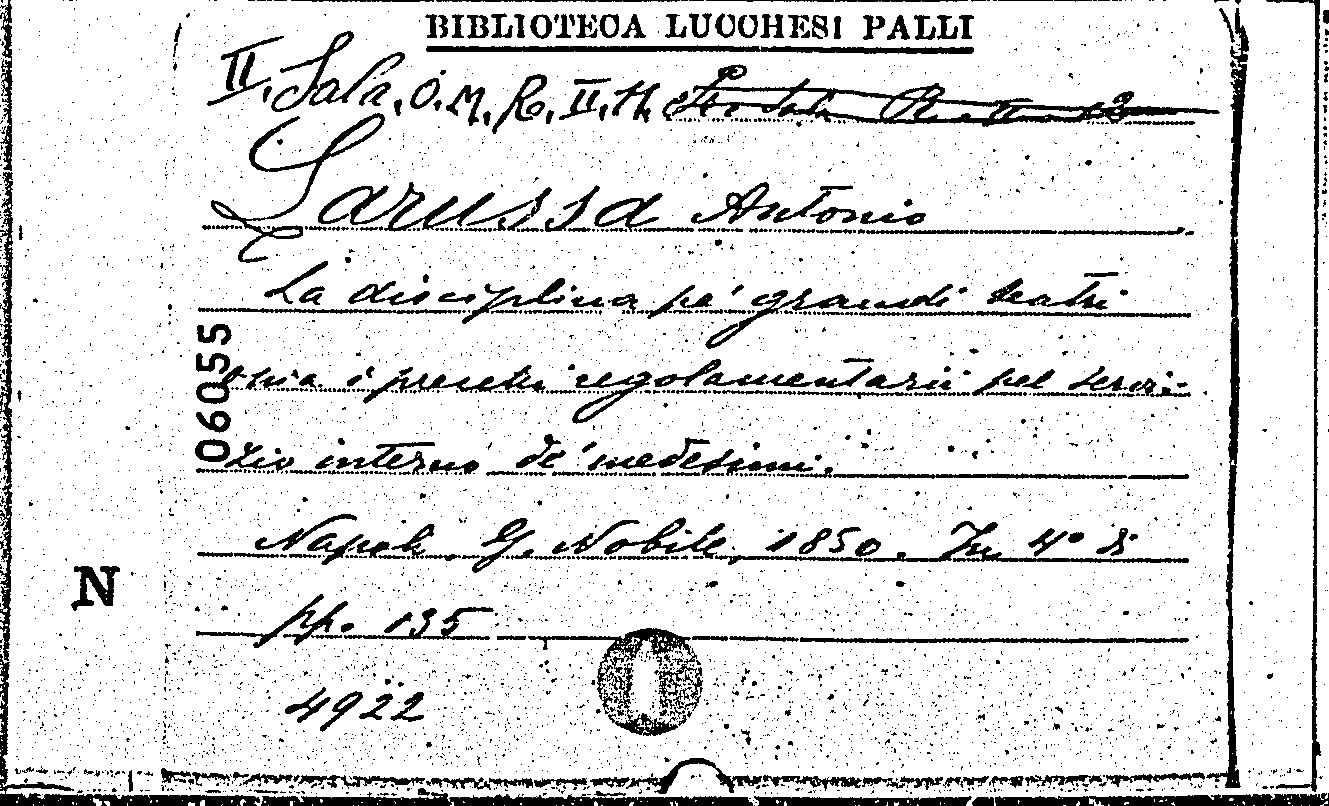 BIBLIOTECA LUCCHESI PALLI
II. Sala, O. M, R. II. H.
Larussa Antonio
La disciplina pe' grandi teatri
ossia i precetti regolamentarii pel servi-
zio interno de' medesimi.
Napoli, G. Nobile, 1850. In 4° di
pp. 135
4922
06055
N